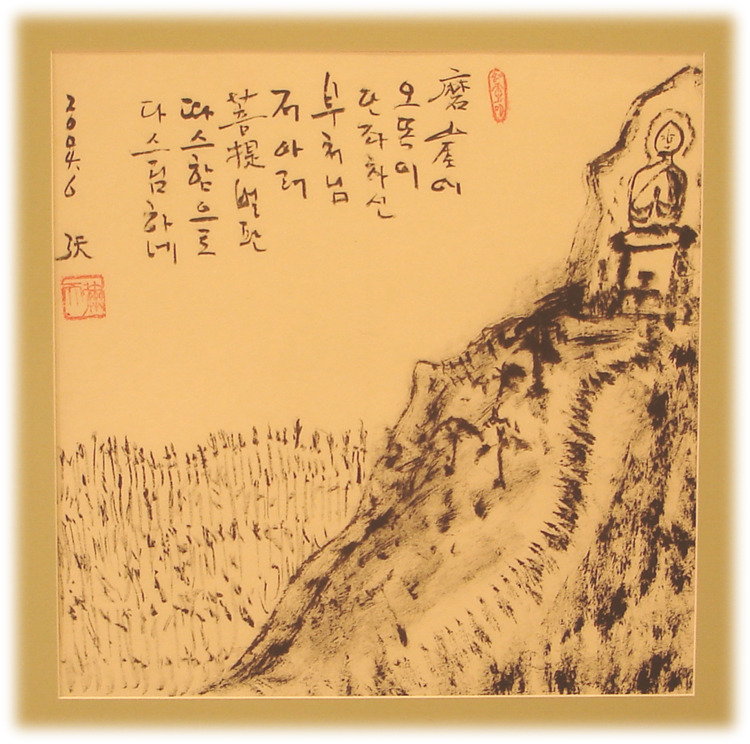 磨崖에
오똑이
단좌하신
부처님
저아래
菩提벌판
따스함으로
다스림하네
2004.6